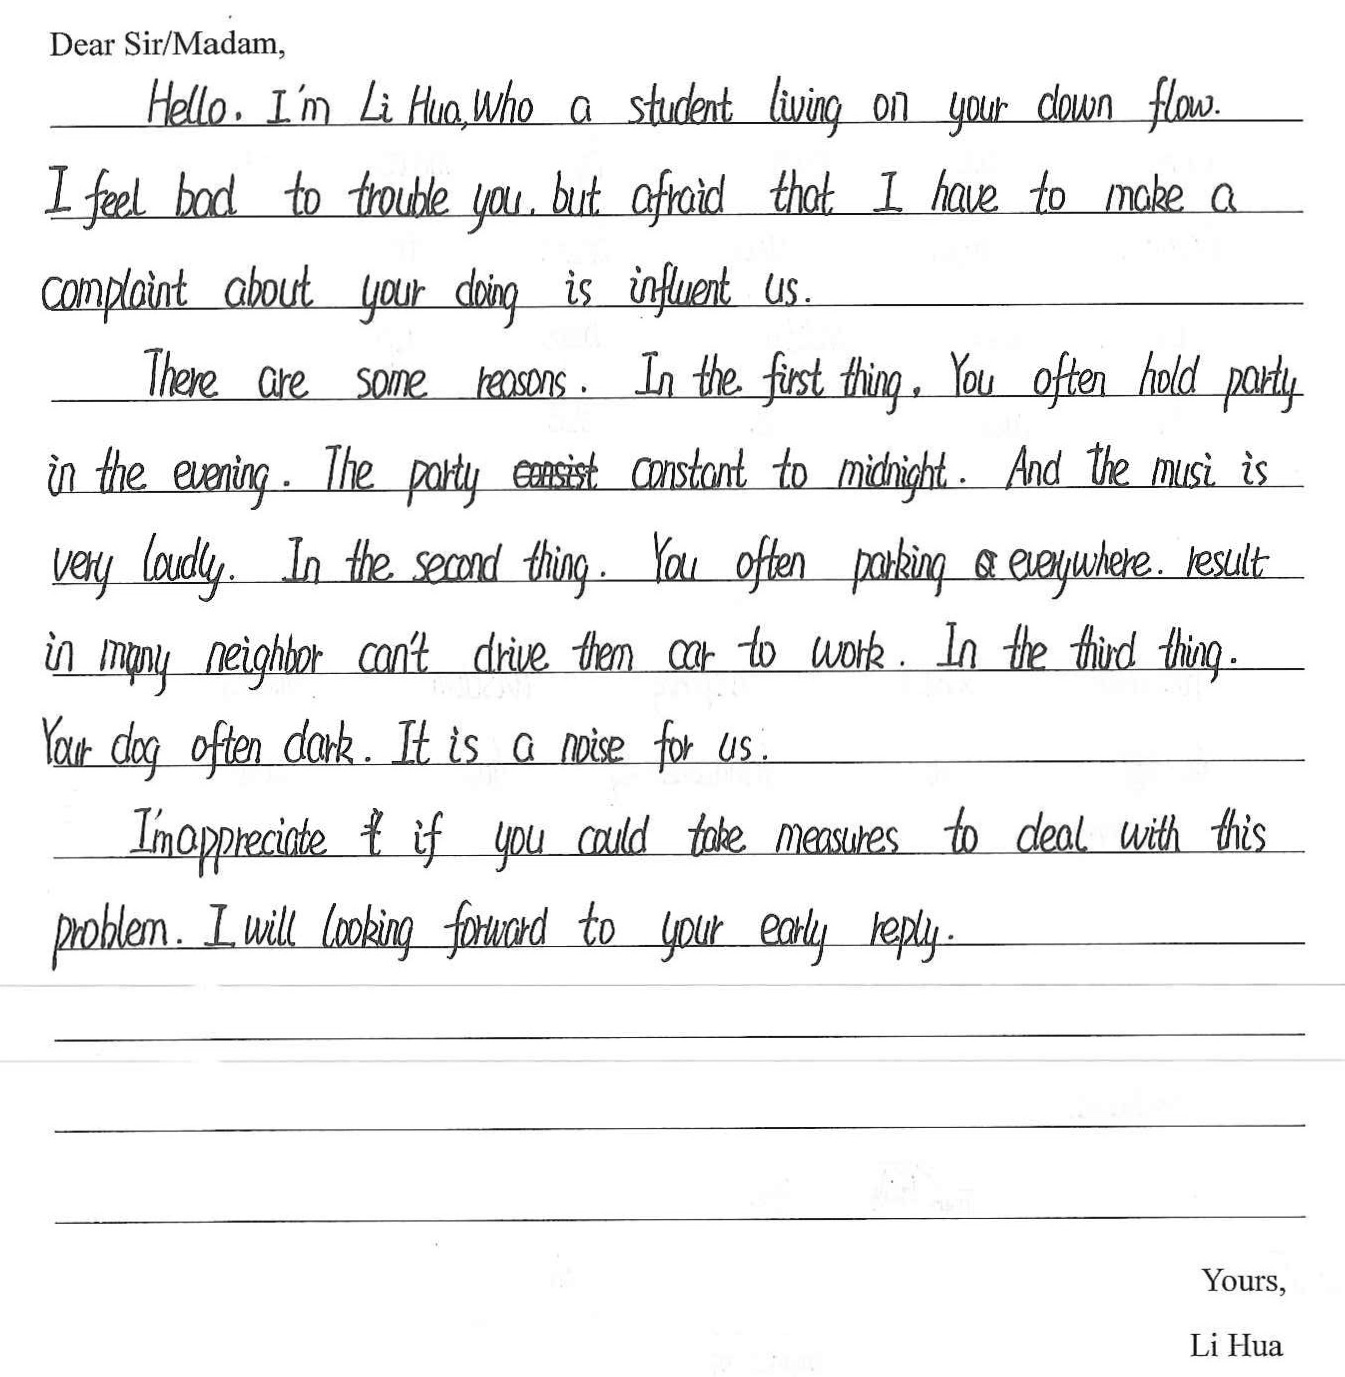 Dear Sir/Madam,
Hello. I'm Li Hua, Who a student living on your down flow.
I feel bad to trouble you. but afraid that I have to make a
complaint about your doing is influent us.
There are some reasons. In the first thing, You often hold party
in the evening. The party consist constant to midnight. And the musi is
very loudly. In the second thing. You often parking everywhere. result
in many neighbor can't drive them car to work. In the third thing.
Your dog often dark. It is a noise for us.
I'm appreciate if you could take measures to deal with this
problem. I will looking forward to your early reply.
Yours,
Li Hua